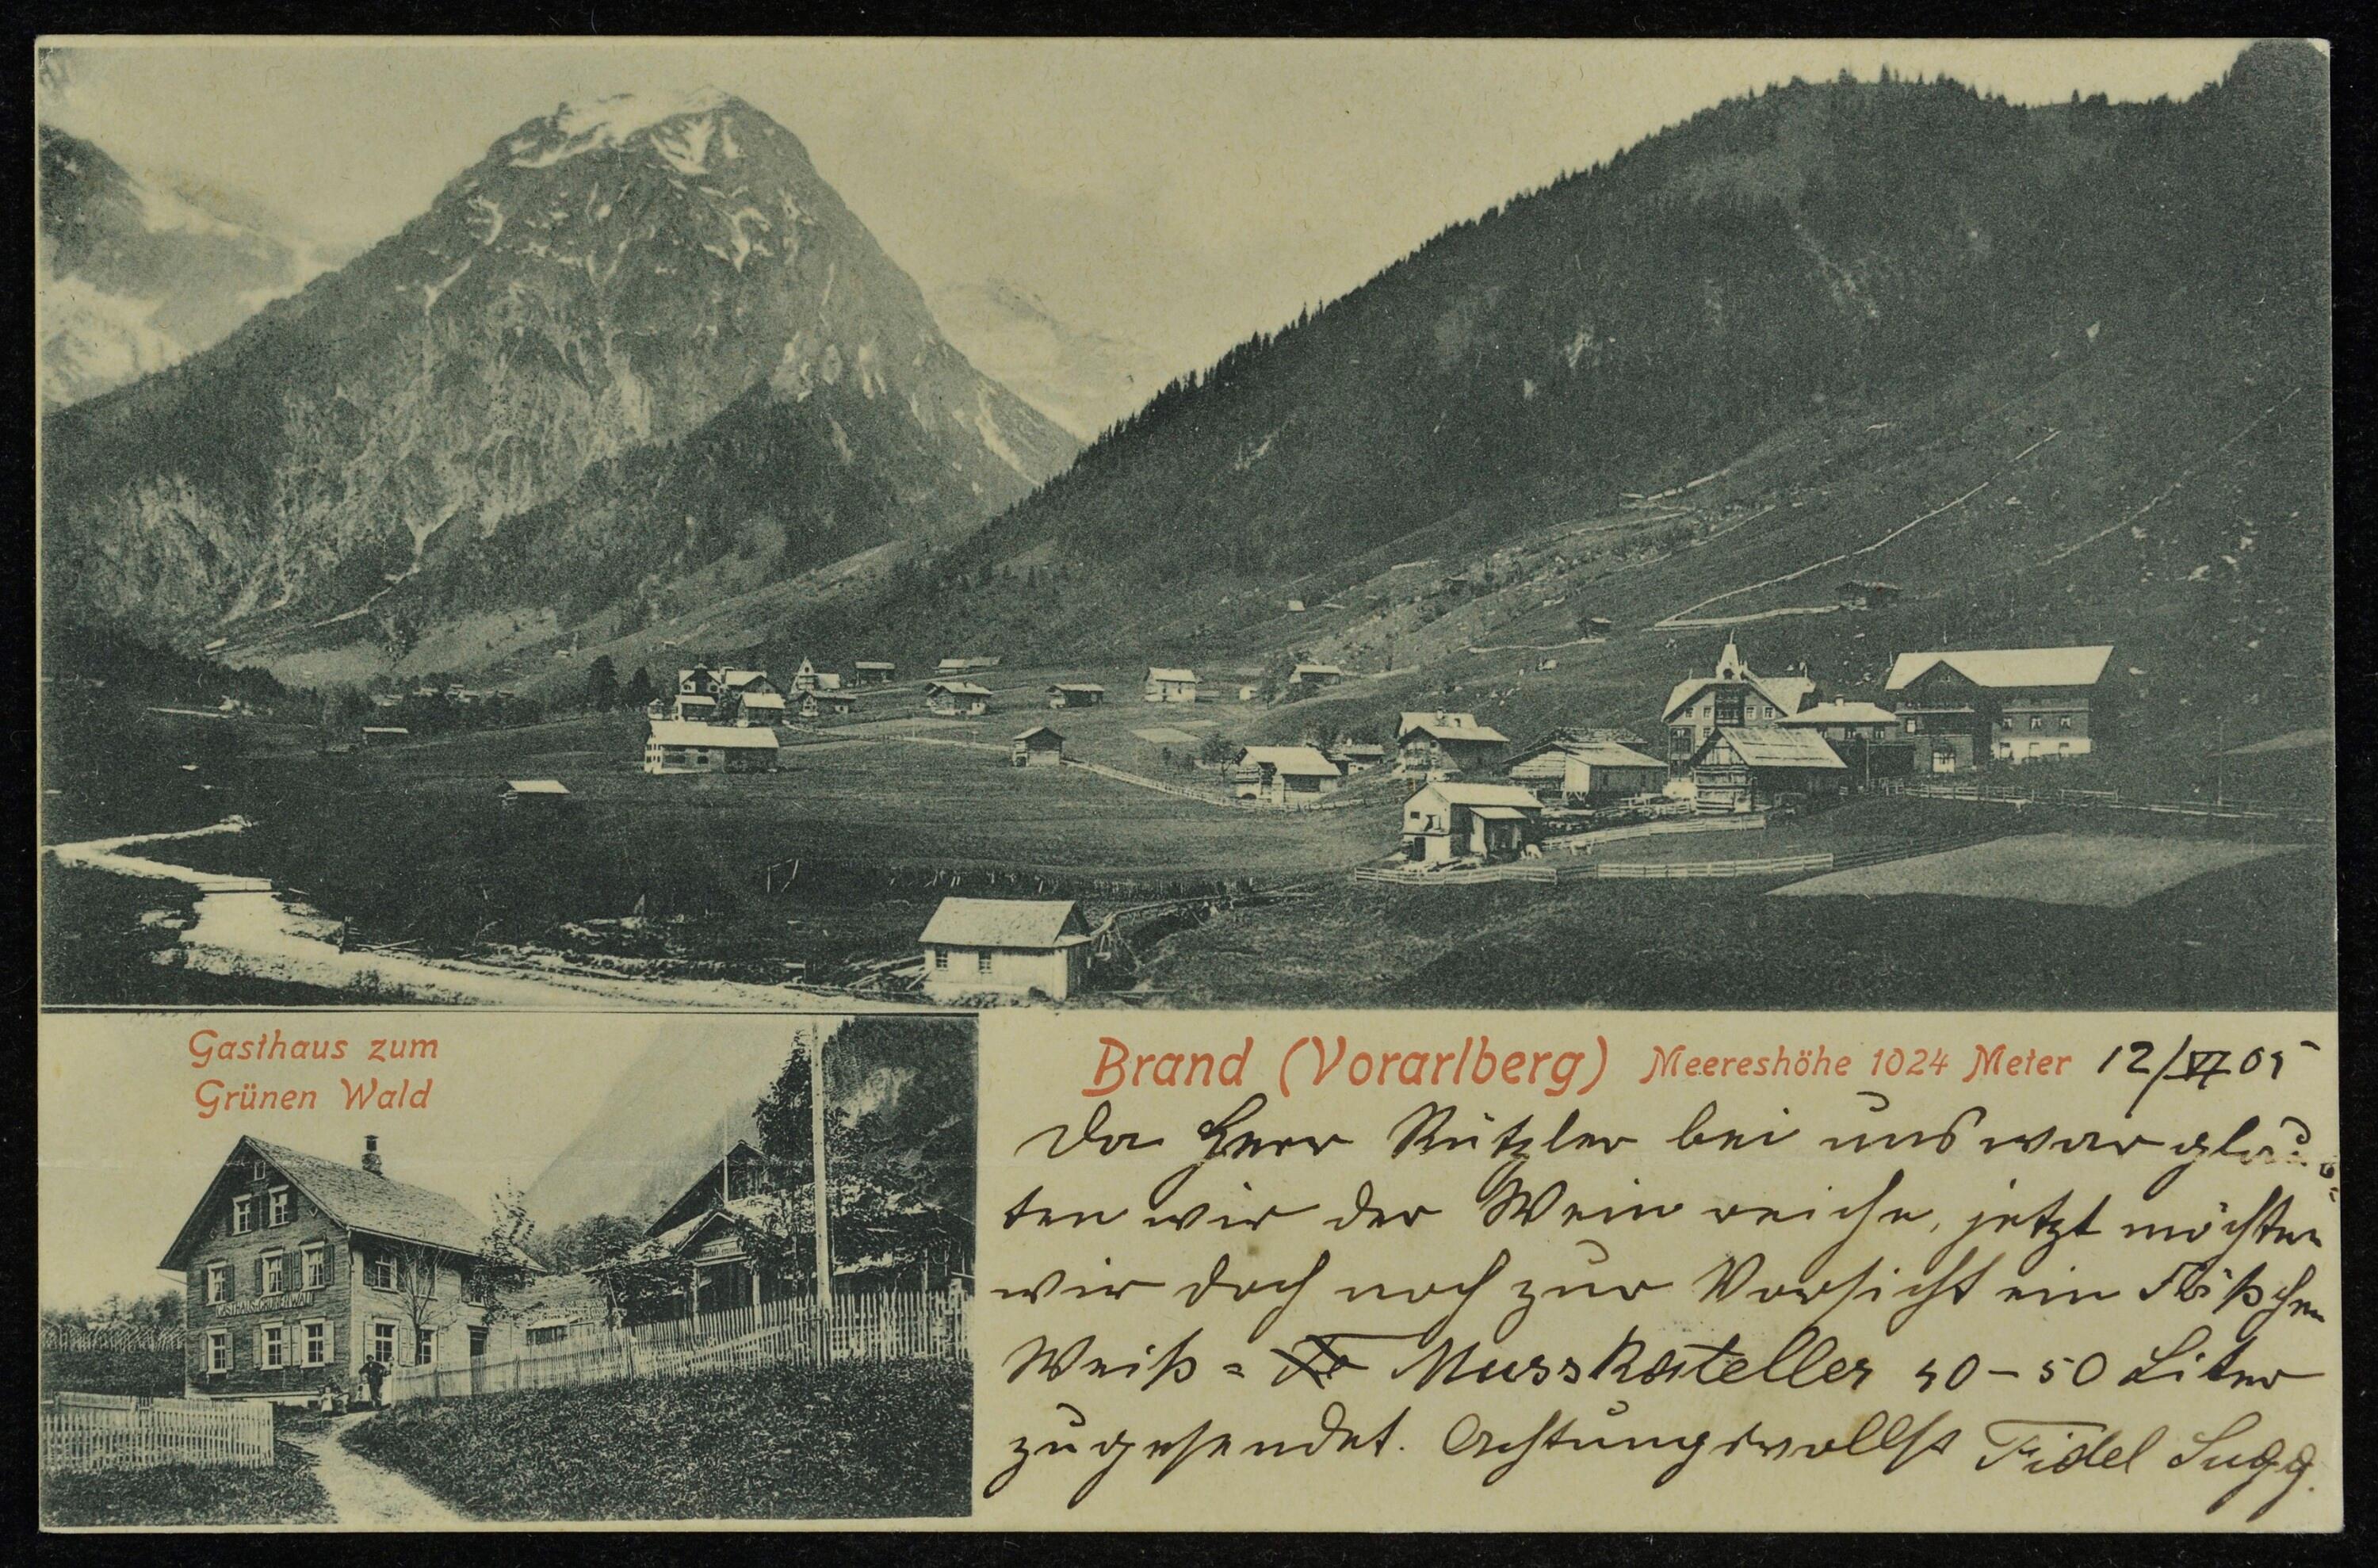 Gasthaus zum
Grünen Wald
GASTHAUS GRÜNER WALD
Brand (Vorarlberg) Meereshöhe 1024 Meter 12/VI 05
Da Herr Rützler bei uns war glaub-
ten wir der Wein reiche, jetzt möchten
wir doch noch zur Vorsicht ein Fäßchen
Weiß = Musskateller 40–50 Liter
zugesendet. Achtungsvollst Fidel Sugg.